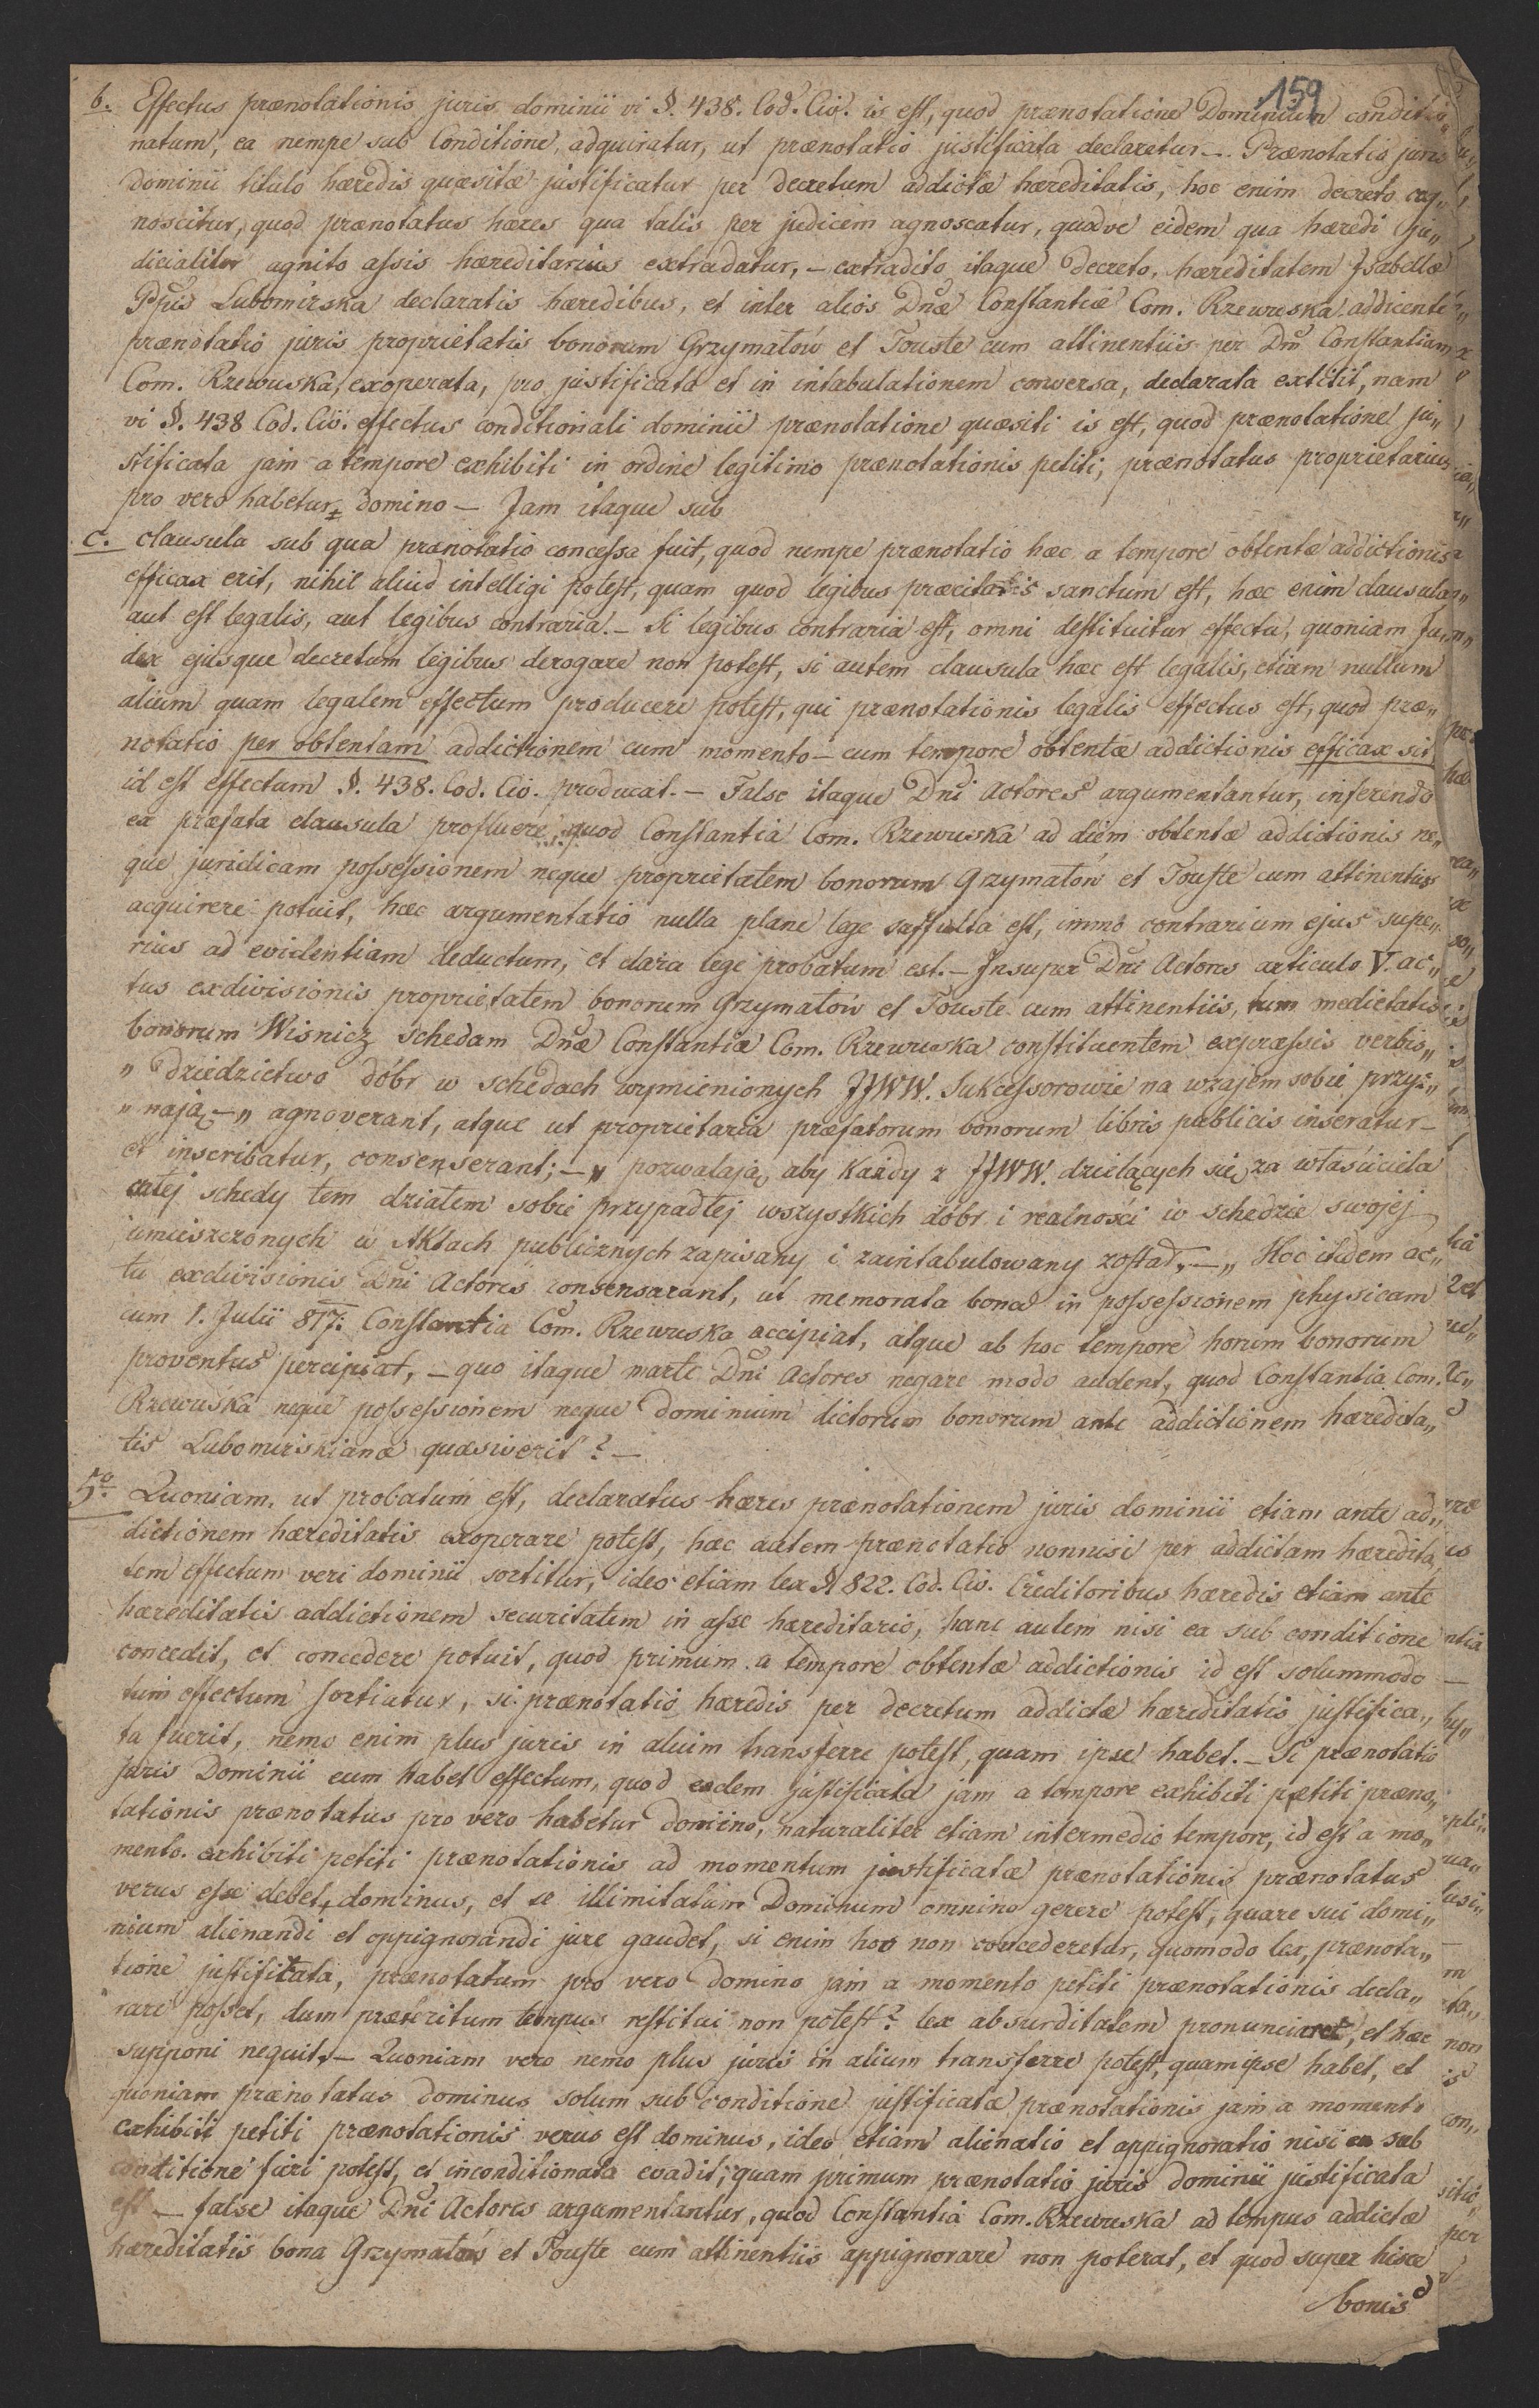 159
b. Effectus prænotationis juris dominii vi §. 438. Cod. Civ. is est, quod prænotatione Dominium conditio„
natum, ea nempe sub Conditione, adquiratur, ut prænotatio justificata declaretur. — Prænotatio juris
dominii titulo hæredis quæsitæ justificatur per decretum addictæ hæreditatis, hoc enim decreto cog„
noscitur, quod prænotatus hæres qua talis per judicem agnoscatur, quodve eidem qua hæredi ju„
dicialiter agnito assis hæreditarius extradatur, — extradito itaque decreto, hæreditatem Isabellæ
Ppis Lubomirska declaratis hæredibus, et inter alios Dnæ Constantiæ Com. Rzewuska addicenti
prænotatio juris proprietatis bonorum Grzymałów et Touste cum attinentiis per Dm Constantiam
Com. Rzewuska, exoperata, pro justificata et in intabulationem conversa, declarata extitit, nam
vi §. 438 Cod. Civ. effectus conditionali dominii prænotatione quæsiti is est, quod prænotatione ju„
stificata jam a tempore exhibiti in ordine legitimo prænotationis petiti, prænotatus proprietarius
pro vero habetur domino — Jam itaque sub
c. clausula sub qua prænotatio concessa fuit, quod nempe prænotatio hæc a tempore obtentæ addictionis
efficax erit, nihil aliud intelligi potest, quam quod legibus præcitatis sanctum est, hæc enim clausula
aut est legalis, aut legibus contraria. — Si legibus contraria est, omni destituitur effectu, quoniam Ju„
dex ejusque decretum legibus derogare non potest, si autem clausula hæc est legalis, etiam nullum
alium quam legalem effectum producere potest, qui prænotationis legalis effectus est, quod præ„
notatio per obtentam addictionem cum momento — cum tempore obtentæ addictionis efficax sit
id est effectum §. 438. Cod. Civ. producat. — False itaque Dni Actores argumentantur, inferendo
ex præfata clausula profluere, quod Constantia Com. Rzewuska ad diem obtentæ addictionis ne„
que juridicam possessionem neque proprietatem bonorum Grzymałów et Touste cum attinentiis
acquirere potuit, hæc argumentatio nulla plane lege suffulta est, immo contrarium ejus supe„
rius ad evidentiam deductum, et clara lege probatum est. — Insuper Dni Actores articulo V. ac„
tus exdivisionis proprietatem bonorum Grzymałów et Touste cum attinentiis, tum medietatis
bonorum Wisnicz schedam Dnæ Constantiæ Com. Rzewuska constituentem expræssis verbis„
„ Dziedzictwo dóbr w schedach wymienionych JJWW. Sukcessorowie na wzajem sobie przyz„
„ nają — „ agnoverant, atque ut proprietaria præfatorum bonorum libris publicis inseratur —
et inscribatur, consenserant; — „ pozwalają, aby każdy z JJWW. dzielących się, za właściciela
całej schedy tem działem sobie przypadłej wszystkich dóbr i realności w schedzie swojej
umieszczonych w Aktach publicznych zapisany i zaintabulowany został, — „ Hoc itidem ac„
tu exdivisionis Dni Actores consenserant, ut memorata bona in possessionem physicam
cum 1. Julii 817. Constantia Com. Rzewuska accipiat, atque ab hoc tempore horum bonorum
proventus percipiat, — quo itaque marte Dni Actores negare modo audent, quod Constantia Com.
Rzewuska neque possessionem neque Dominium dictorum bonorum ante addictionem hæredita„
tis Lubomirskianæ quæsiverit? —
5o. Quoniam, ut probatum est, declaratus hæres prænotationem juris dominii etiam ante ad„
dictionem hæreditatis exoperare potest, hæc autem prænotatio nonnisi per addictam hæredita„
tem effectum veri dominii sortitur, ideo etiam lex § 822. Cod. Civ. Creditoribus hæredis etiam ante
hæreditatis addictionem securitatem in asse hæreditario, hanc autem nisi ea sub conditione
concedit, et concedere potuit, quod primum a tempore obtentæ addictionis id est solummodo
tum effectum sortiatur, si prænotatio hæredis per decretum addictæ hæreditatis justifica„
ta fuerit, nemo enim plus juris in alium transferre potest, quam ipse habet. — Si prænotatio
Juris Dominii eum habet effectum, quod eadem justificata jam a tempore exhibiti petiti præno„
tationis prænotatus pro vero habetur domino, naturaliter etiam intermedio tempore, id est a mo„
mento exhibiti petiti prænotationis ad momentum justificatæ prænotationis prænotatus
verus esse debet dominus, et se illimitatum Dominum omnino gerere potest, quare sui domi„
nium alienandi et oppignorandi jure gaudet, si enim hoc non concederetur, quomodo lex, prænota„
tione justificata, prænotatum pro vero Domino jam a momento petiti prænotationis decla„
rare posset, dum præteritum tempus restitui non potest? lex absurditatem pronunciaret, et hæc
supponi nequit. — Quoniam vero nemo plus juris in alium transferre potest, quam ipse habet, et
quoniam prænotatus dominus solum sub conditione justificatæ prænotationis jam a momento
exhibiti petiti prænotationis verus est dominus, ideo etiam alienatio et oppignoratio nisi ea sub
conditione fieri potest, et inconditionata evadit, quam primum prænotatio juris dominii justificata
est — false itaque Dni Actores argumentantur, quod Constantia Com. Rzewuska ad tempus addictæ
hæreditatis bona Grzymałów et Touste cum attinentiis oppignorare non poterat, et quod super hisce
bonis